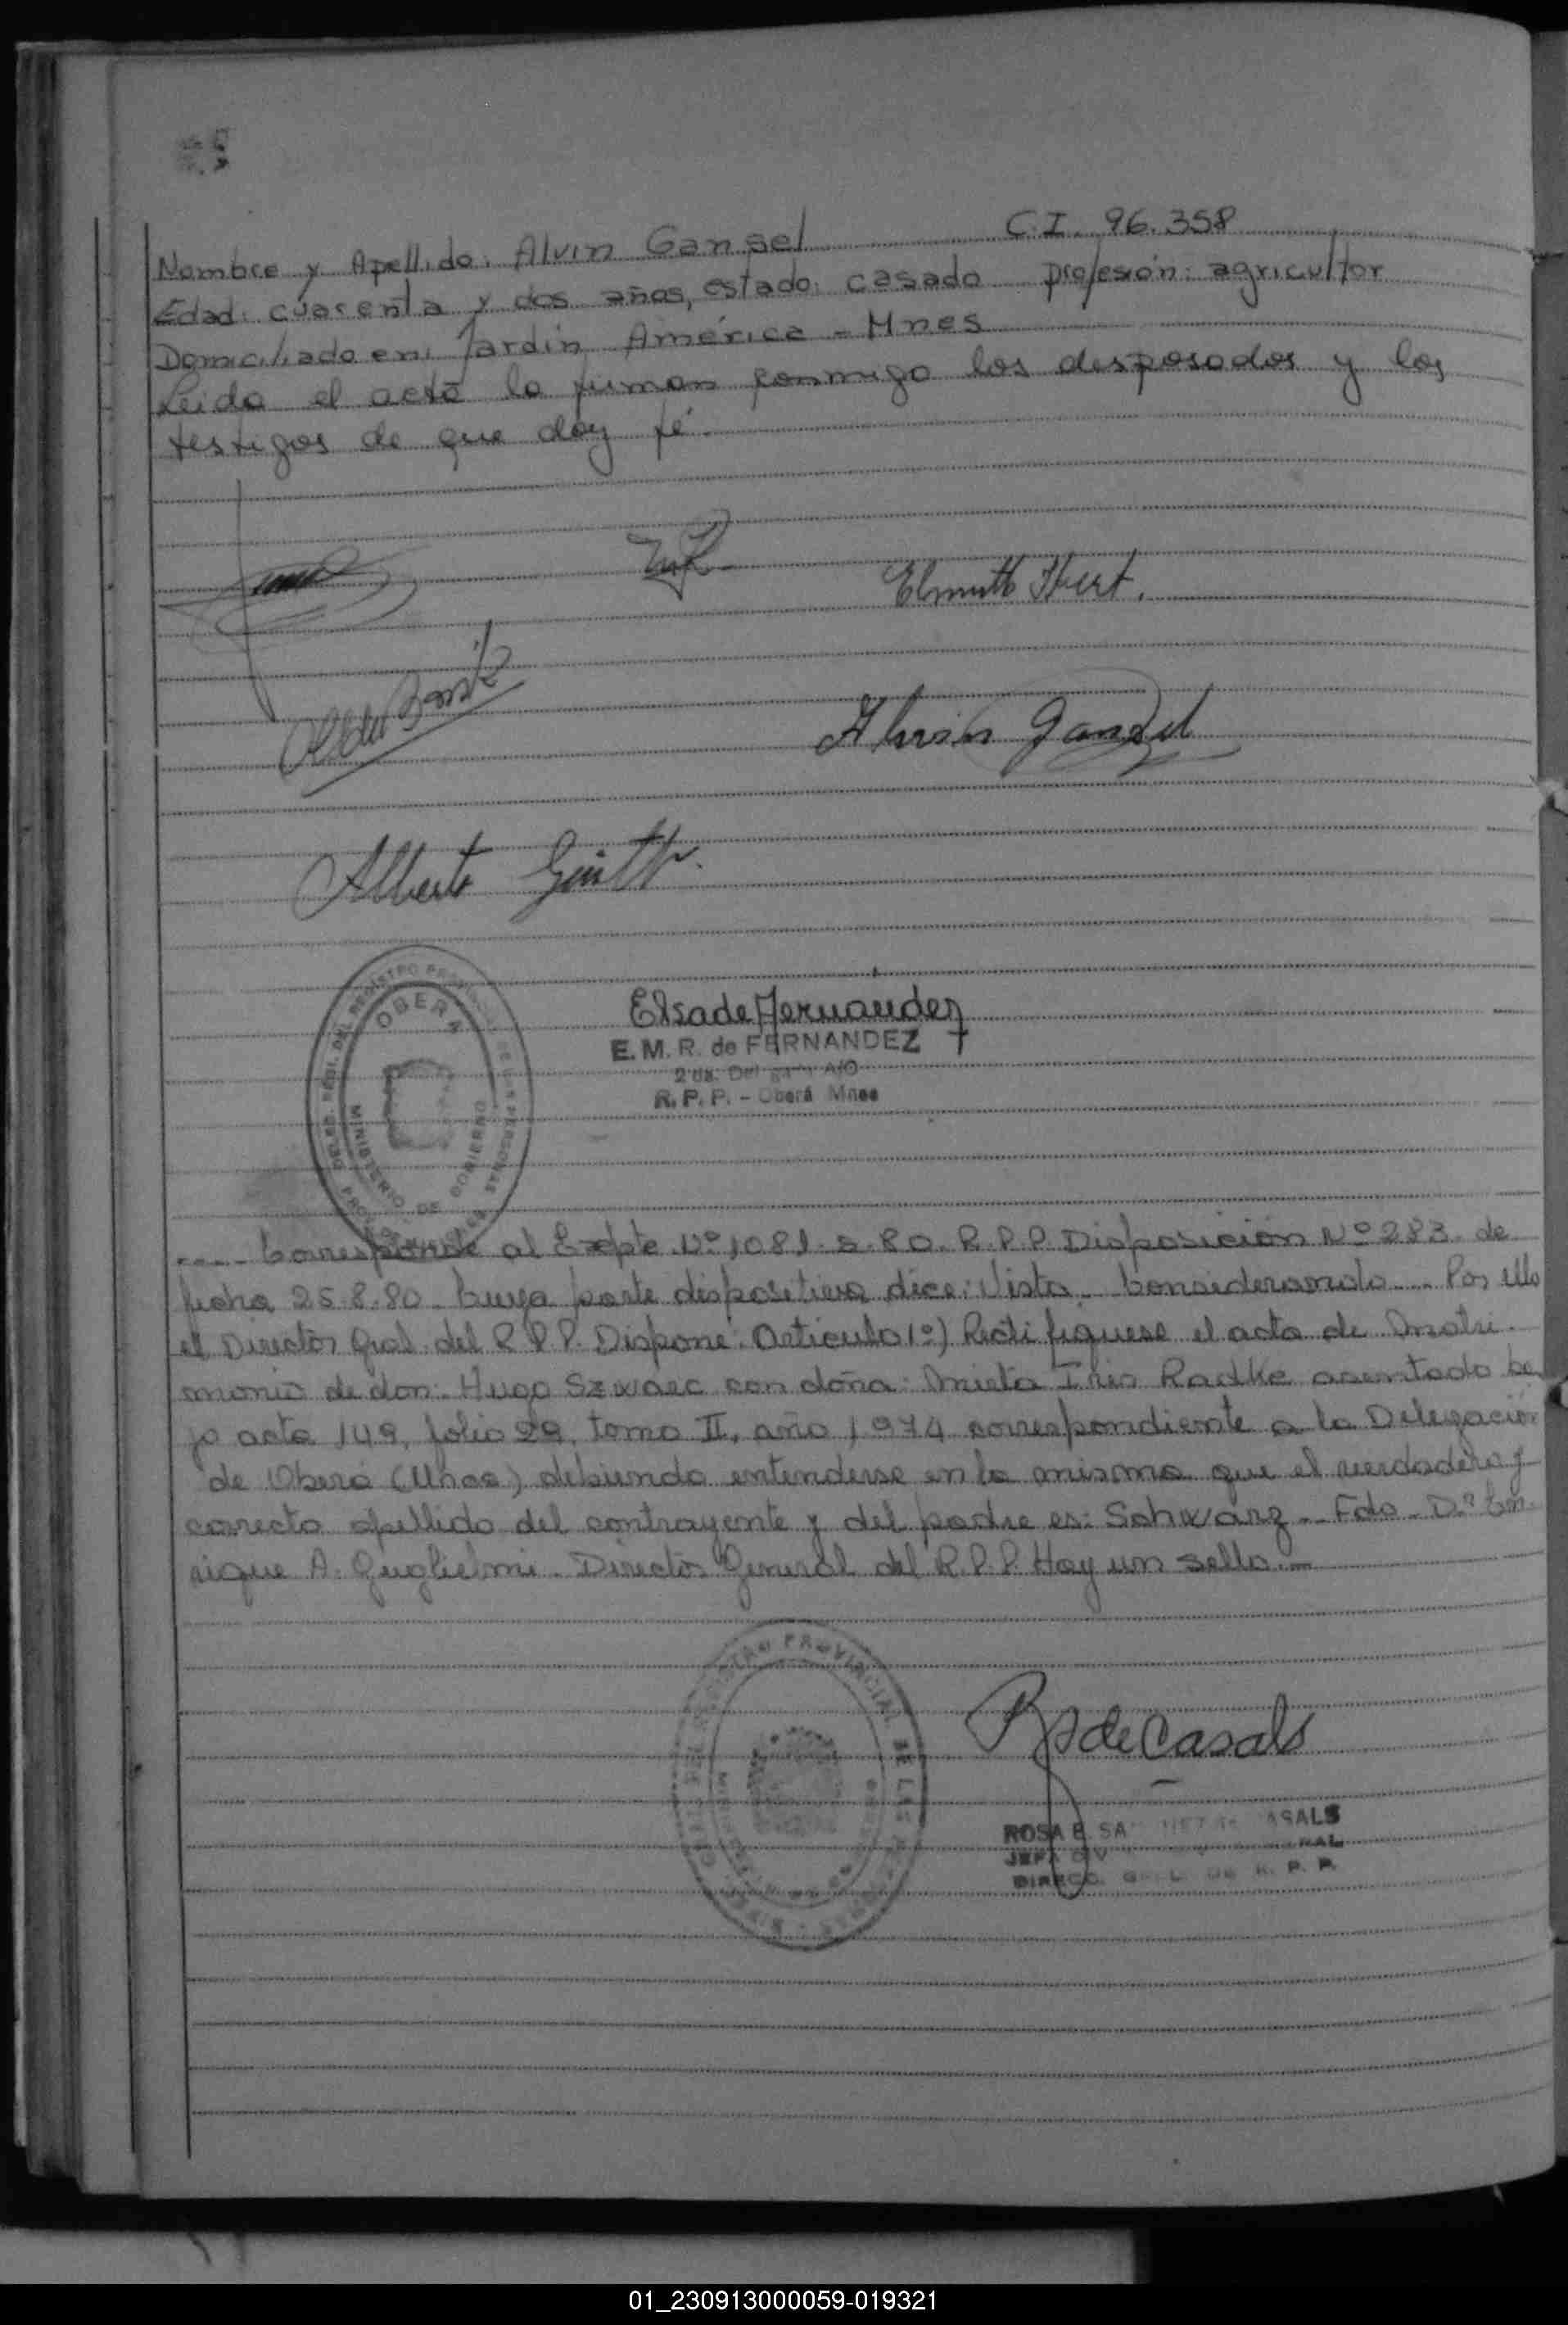 Nombre y Apellido: Alvin Gansel C.I. 96.358
Edad: cuarenta y dos años, estado: casado profesión: agricultor
Domiciliado en: Jardín América - Mnes
Leida el acta la firman conmigo los desposados y los
testigos de que doy fé.
Alvin Ganzel
Alberto
Elsa de Fernandez
E. M. R. de FERNANDEZ
2da. A/C
R. P. P. - Oberá Mnes
OBERA
MINISTERIO DE GOBIERNO
.... Corresponde al Expte. Nº 1081-S-80. R.P.P. Disposición Nº 283 de
fecha 25.8.80. Cuya parte dispositiva dice: Visto. Considerando... Por ello
el Director Gral. del R.P.P. Dispone: Articulo 1º) Rectifiquese el acta de Matri-
monio de don: Hugo Szwarc con doña: Mirta Iris Radtke asentado ba
jo acta 149, folio 29, tomo II, año 1974 correspondiente a la Delegación
de Oberá (Mnes) debiendo entenderse en la misma que el verdadero y
correcto apellido del contrayente y del padre es: Schwarz. - Fdo - Dº En-
rique A. Guglielmi. Director General del R.P.P. Hay un sello. -
REGISTRO PROVINCIAL DE LAS
R S de Casals
ROSA E. CASALS
JEFA DIV
DIRECC. R. P. P.
01_230913000059-019321